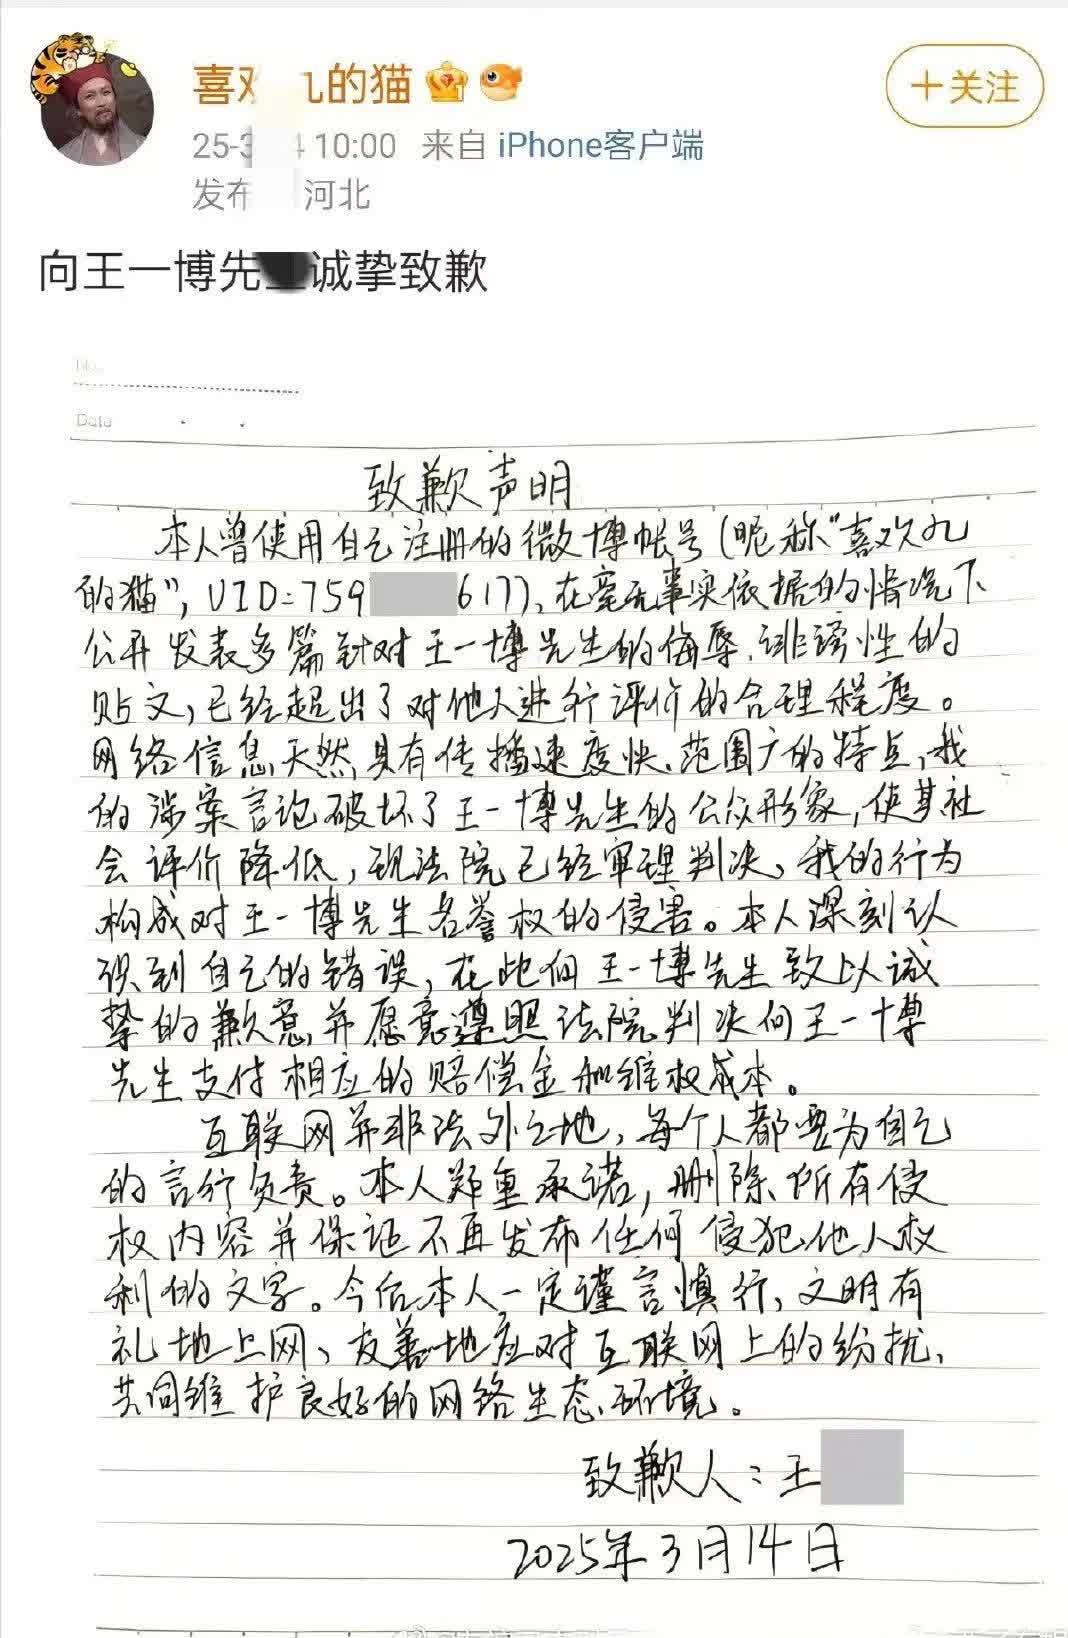 喜欢九的猫
+关注
25-3 4 10:00 来自 iPhone客户端
发布 河北
向王一博先生诚挚致歉
No.
Date
致歉声明
本人曾使用自己注册的微博帐号(昵称“喜欢九
的猫”,UID:759 617),在毫无事实依据的情况下
公开发表多篇针对王一博先生的侮辱、诽谤性的
贴文,已经超出了对他人进行评价的合理程度。
网络信息天然具有传播速度快、范围广的特点,我
的涉案言论破坏了王一博先生的公众形象,使其社
会评价降低,现法院已经审理判决,我的行为
构成对王一博先生名誉权的侵害。本人深刻认
识到自己的错误,在此向王一博先生致以诚
挚的歉意,并愿意遵照法院判决向王一博
先生支付相应的赔偿金和维权成本。
互联网并非法外之地,每个人都要为自己
的言行负责。本人郑重承诺,删除所有侵
权内容并保证不再发布任何侵犯他人权
利的文字。今后本人一定谨言慎行,文明有
礼地上网,友善地应对互联网上的纷扰,
共同维护良好的网络生态环境。
致歉人:王
2025年3月14日